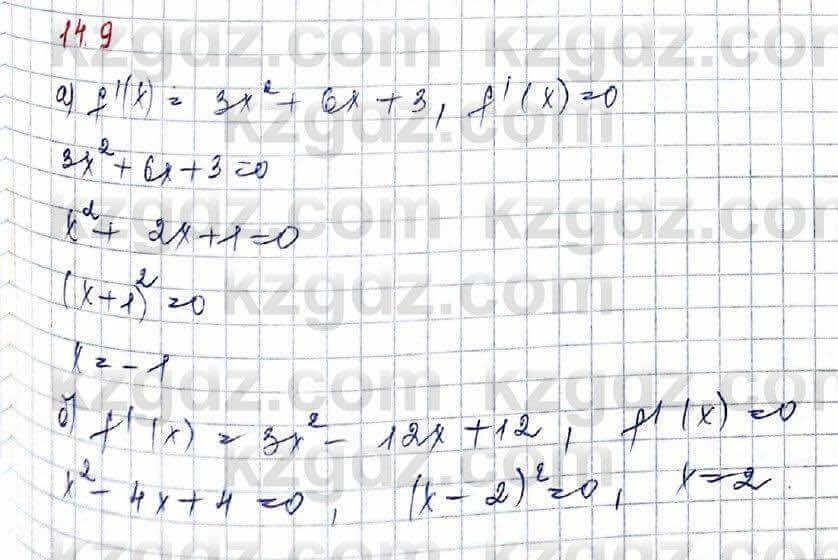 14.9
а) f'(x) = 3x² + 6x + 3, f'(x) = 0
3x² + 6x + 3 = 0
x² + 2x + 1 = 0
(x + 1)² = 0
x = -1
б) f'(x) = 3x² - 12x + 12, f'(x) = 0
x² - 4x + 4 = 0, (x - 2)² = 0, x = 2.
kzgdz.com
kzgdz.com
kzgdz.com
kzgdz.com
kzgdz.com
kzgdz.com
kzgdz.com